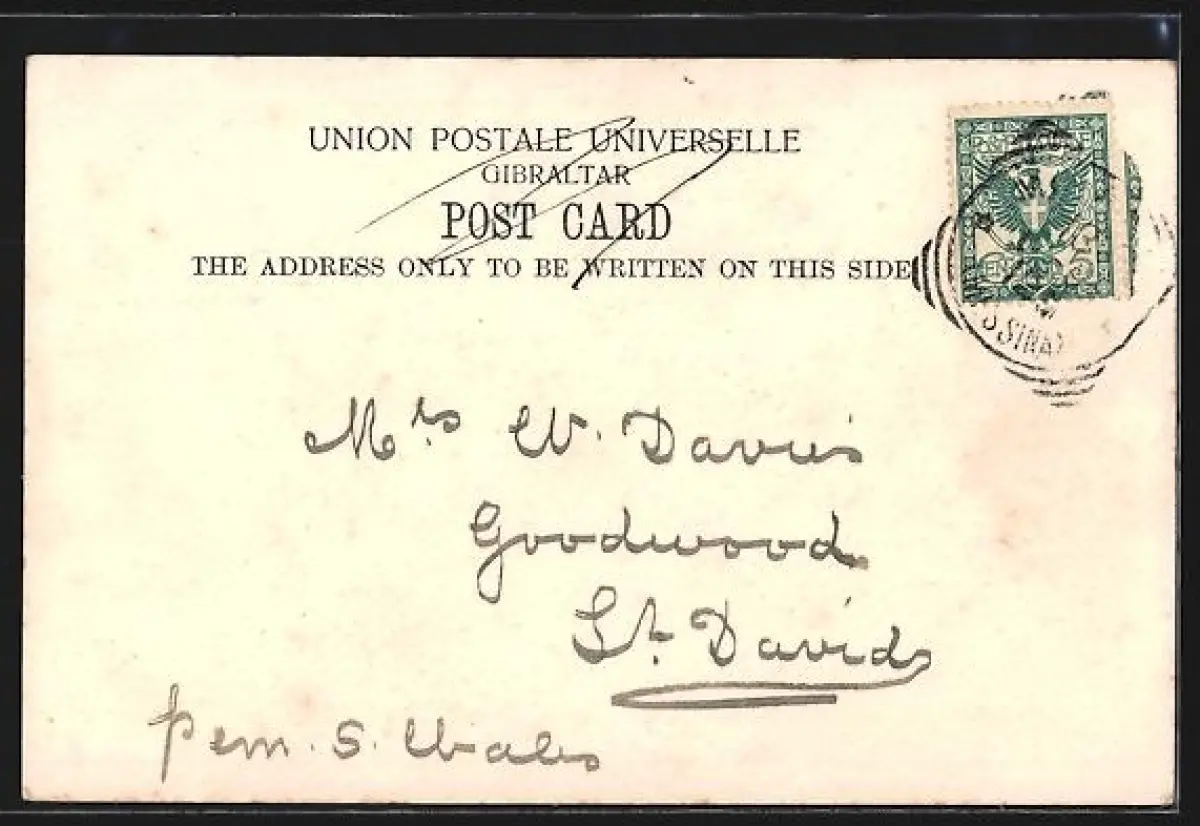 UNION POSTALE UNIVERSELLE
GIBRALTAR
POST CARD
THE ADDRESS ONLY TO BE WRITTEN ON THIS SIDE
Mrs W. Davies
Goodwood
St. Davids
Pem. S. Wales